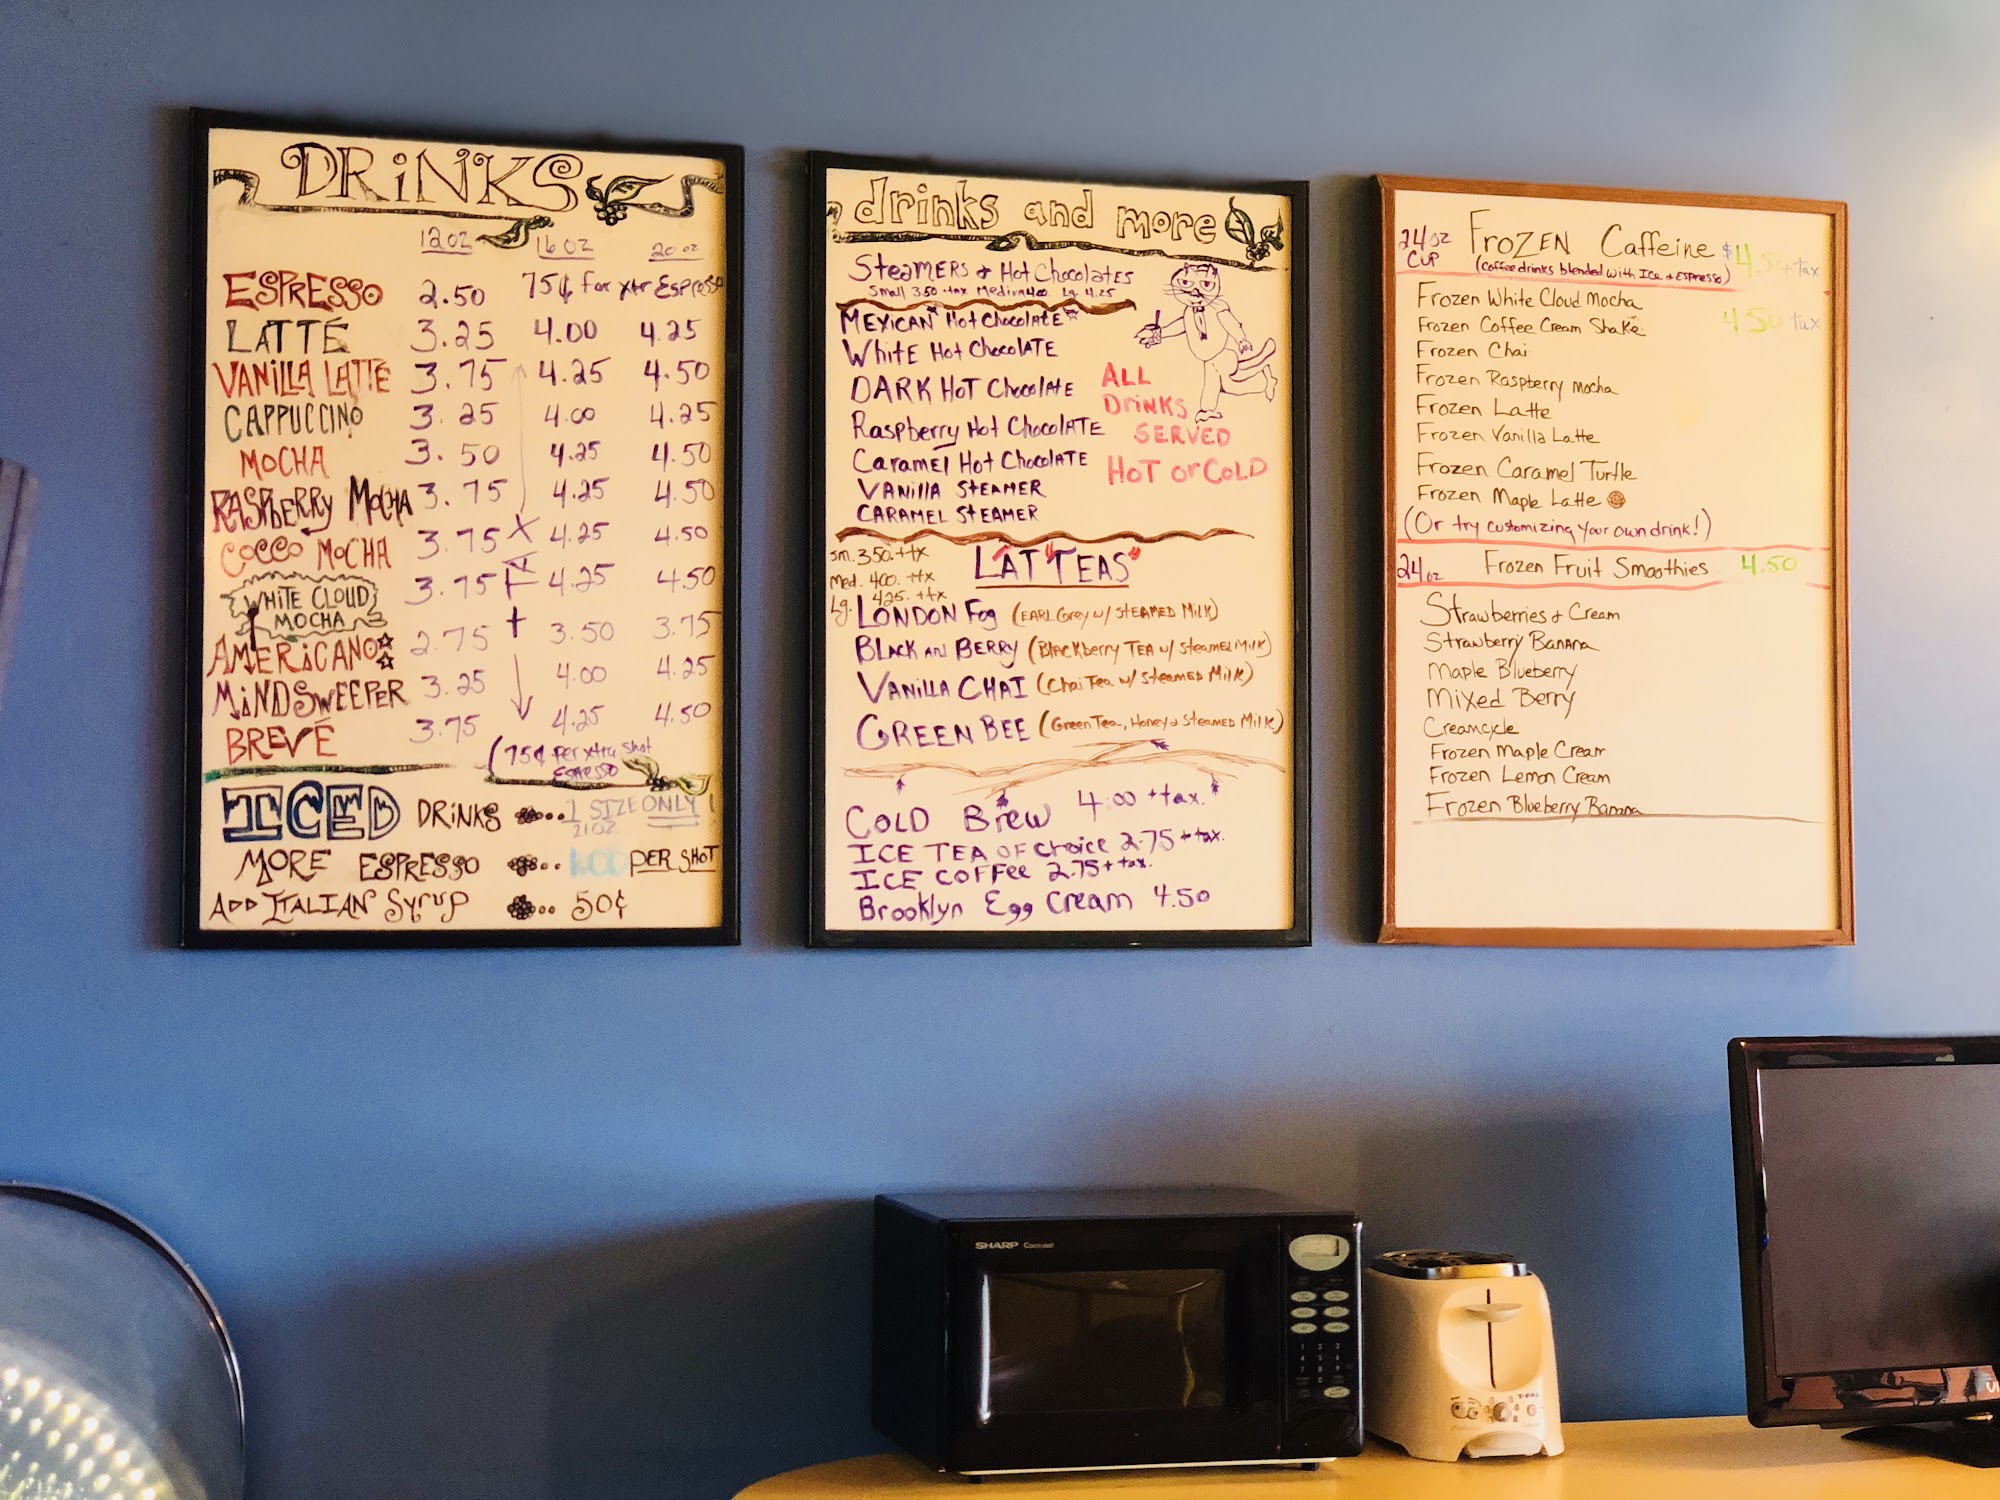 DRiNKS
12oz 16 oz 20 oz
ESPRESSO 2.50 75¢ for xtr Espresso
LATTÉ 3.25 4.00 4.25
VANILLA LATTÉ 3.75 4.25 4.50
CAPPUCCINO 3.25 4.00 4.25
MOCHA 3.50 4.25 4.50
RASPBERRY MOCHA 3.75 4.25 4.50
COCCO MOCHA 3.75 4.25 4.50
WHITE CLOUD MOCHA 3.75 4.25 4.50
AMERICANO 2.75 3.50 3.75
MiNDSWEEPER 3.25 4.00 4.25
BREVÉ 3.75 4.25 4.50
(75¢ per xtra shot
Espresso
ICED DRINKS 1 SIZE ONLY!
21oz
MORE ESPRESSO 1.00 PER SHOT
ADD ITALIAN SYRUP 50¢
drinks and more
STEAMERS & Hot Chocolates
Small 3.50 +tax Medium 4.00 Lg 4.25
MEXICAN* Hot ChocolATE*
White Hot ChocolATE
DARK HoT ChocolATE
Raspberry Hot ChocolATE
Caramel Hot ChocolATE
VANILLA STEAMER
CARAMEL STEAMER
ALL
DriNKS
SERVED
HoT or COLD
sm. 350. +tx
med. 400. +tx
Lg. 425. +tx
LAT"TEAS"
LONDON Fog (EARL Grey w/ STEAMED MilK)
BLACK AN BERRY (BlACKberry TEA w/ STEAMED MilK)
VANILLA CHAI (Chai Tea w/ STEAMED MilK)
GREEN BEE (Green Tea, Honey & STEAMED MilK)
COLD Brew 4.00 +tax.
ICE TEA OF Choice 2.75 + tax.
ICE COFFee 2.75 + tax.
Brooklyn Egg Cream 4.50
24oz CUP FROZEN Caffeine $4.50 + tax
(Coffee drinks blended with Ice & Espresso)
Frozen White Cloud Mocha
Frozen Coffee Cream Shake 4.50 tax
Frozen Chai
Frozen Raspberry mocha
Frozen Latte
Frozen Vanilla Latte
Frozen Caramel Turtle
Frozen Maple Latte
(Or try customizing your own drink!)
24oz Frozen Fruit Smoothies 4.50
Strawberries & Cream
Strawberry Banana
Maple Blueberry
Mixed Berry
Creamcycle
Frozen Maple Cream
Frozen Lemon Cream
Frozen Blueberry Banana
SHARP Carousel
T-FAL